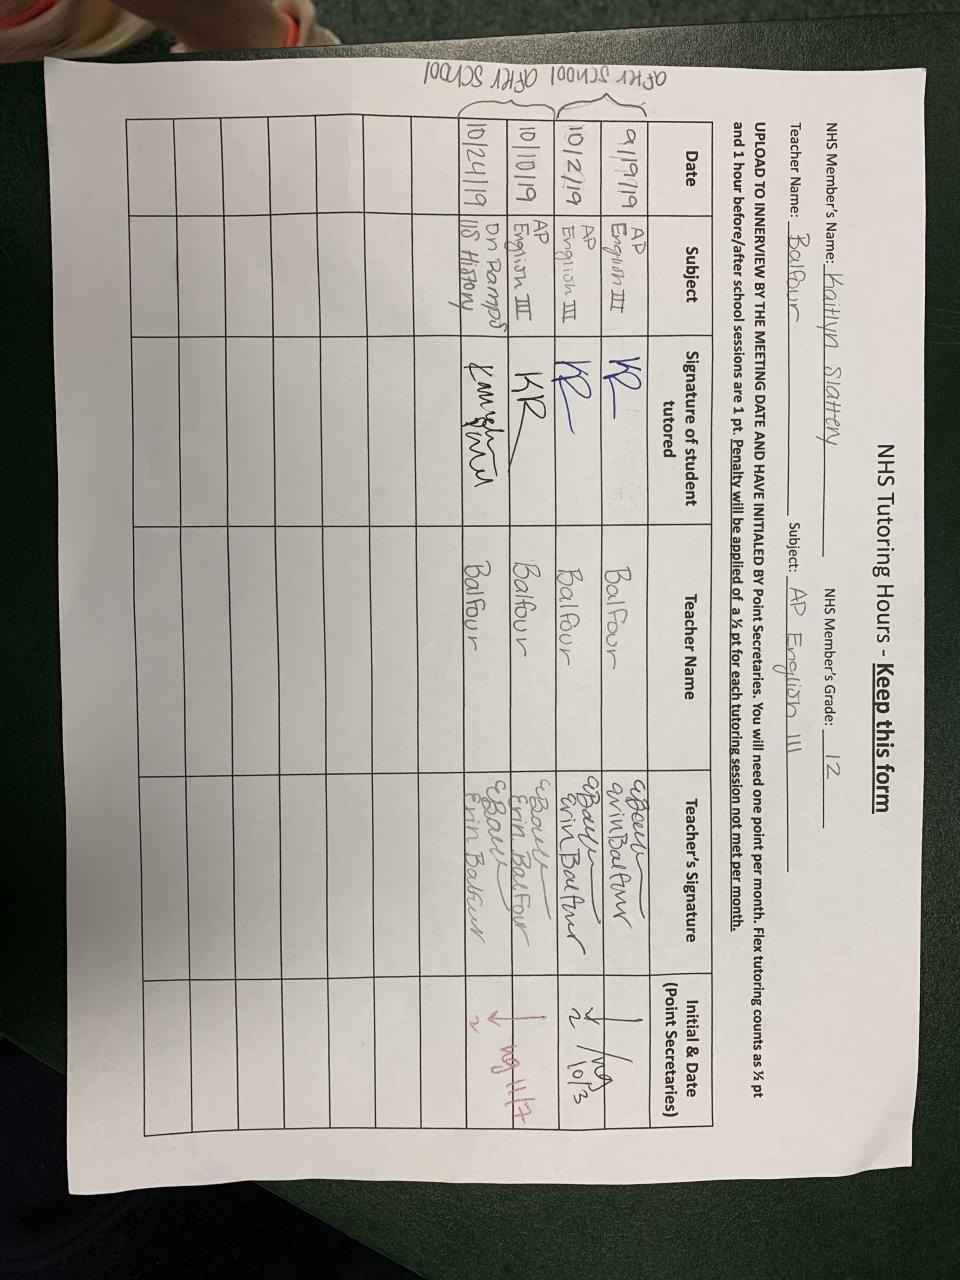 NHS Tutoring Hours - Keep this form
NHS Member's Name: Kaitlyn Slattery NHS Member's Grade: 12
Teacher Name: Balfour Subject: AP English III
UPLOAD TO INNERVIEW BY THE MEETING DATE AND HAVE INITIALED BY Point Secretaries. You will need one point per month. Flex tutoring counts as ½ pt
and 1 hour before/after school sessions are 1 pt. Penalty will be applied of a ½ pt for each tutoring session not met per month.
Date Subject Signature of student tutored Teacher Name Teacher's Signature Initial & Date (Point Secretaries)
AFTER SCHOOL
9/19/19 AP English III KR Balfour Erin Balfour 1
10/2/19 AP English III KR Balfour Erin Balfour 2 / ng 10/3
AFTER SCHOOL
10/10/19 AP English III KR Balfour Erin Balfour 1 ng 11/7
10/24/19 On Ramps US History Balfour Erin Balfour 2